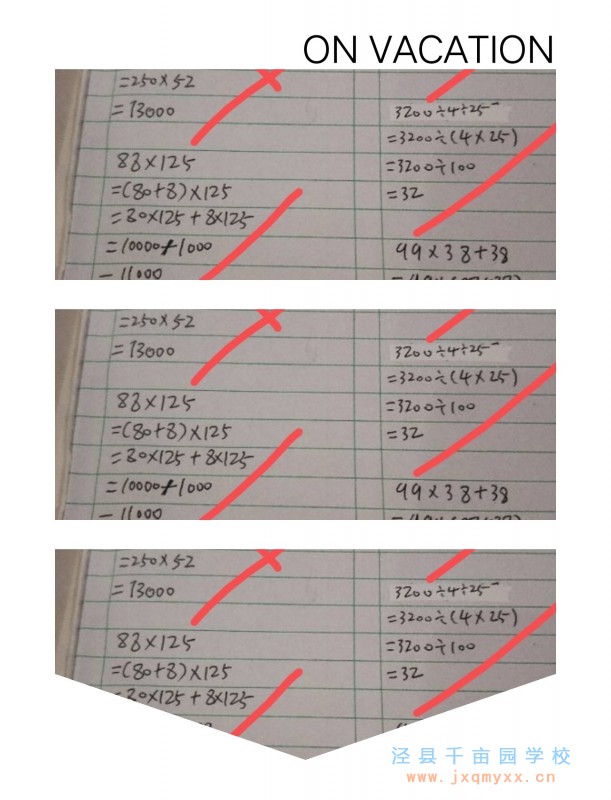 ON VACATION
=250×52
=13000
88×125
=(80+8)×125
=80×125+8×125
=10000+1000
=11000
3200÷4÷25
=3200÷(4×25)
=3200÷100
=32
99×38+38
=250×52
=13000
88×125
=(80+8)×125
=80×125+8×125
=10000+1000
=11000
3200÷4÷25
=3200÷(4×25)
=3200÷100
=32
99×38+38
=250×52
=13000
88×125
=(80+8)×125
=80×125+8×125
3200÷4÷25
=3200÷(4×25)
=3200÷100
=32
泾县千亩园学校
www.jxqmyxx.cn